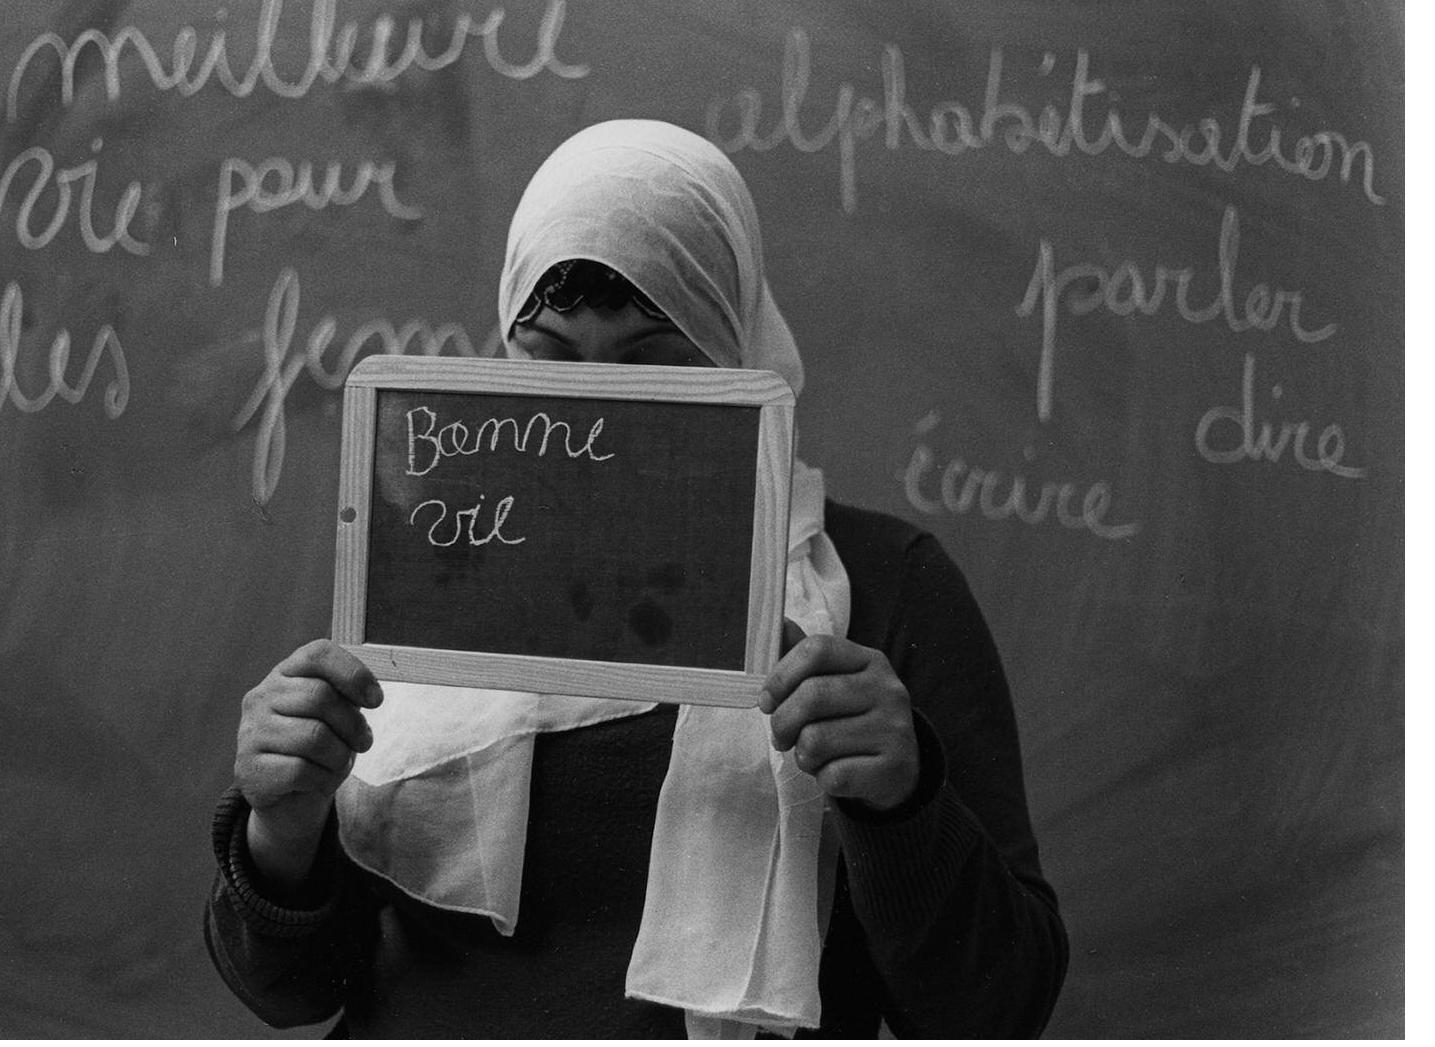 meilleure
vie pour
les fem
alphabétisation
parler
dire
écrire
Bonne
vie